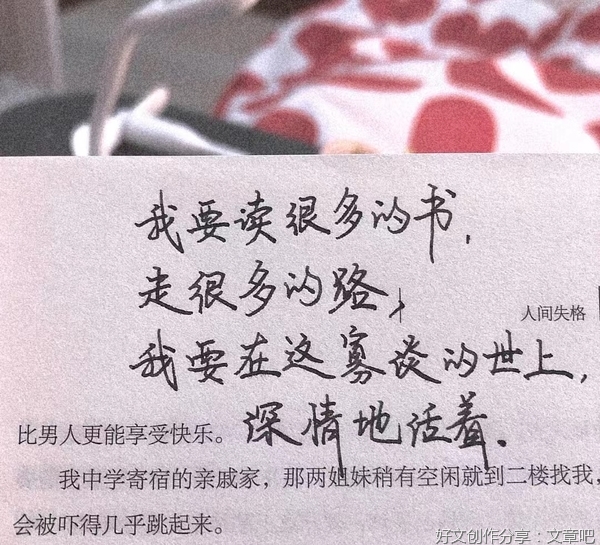 我要读很多的书,
走很多的路,
人间失格
我要在这寡谈的世上,
深情地活着.
比男人更能享受快乐。
我中学寄宿的亲戚家，那两姐妹稍有空闲就到二楼找我，
会被吓得几乎跳起来。
好文创作分享：文章吧